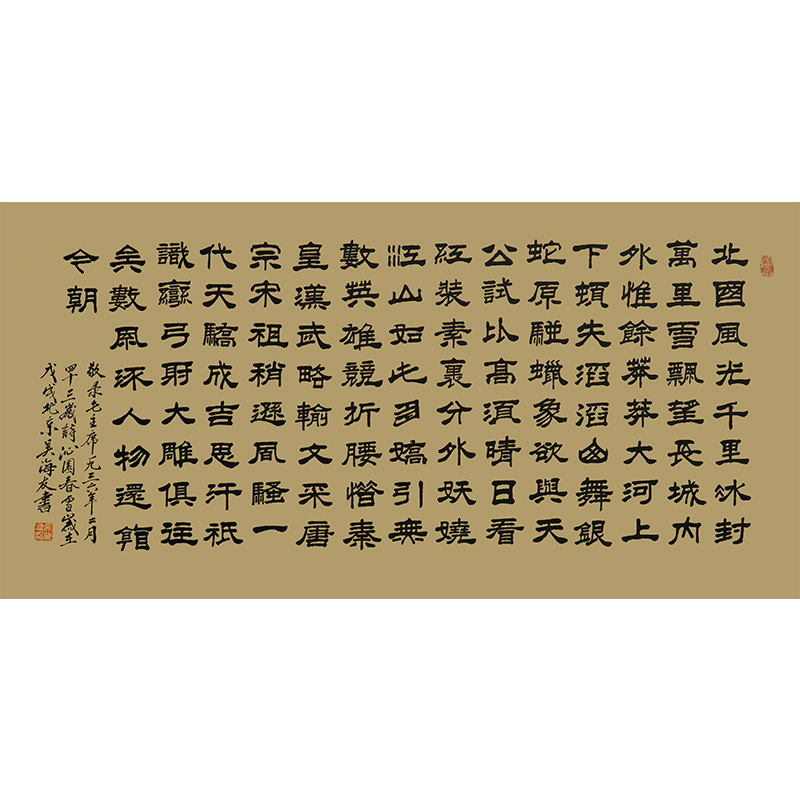 北國風光千里冰封
萬里雪飄望長城內
外惟餘莽莽大河上
下頓失滔滔山舞銀
蛇原馳蠟象欲與天
公試比高須晴日看
紅裝素裹分外妖嬈
江山如此多嬌引無
數英雄競折腰惜秦
皇漢武略輸文采唐
宗宋祖稍遜風騷一
代天驕成吉思汗祇
識彎弓射大雕俱往
矣數風流人物還看
今朝
敬录毛主席一九三六年二月
四十三歲時沁園春雪歲在
戊戌北京吴海友書